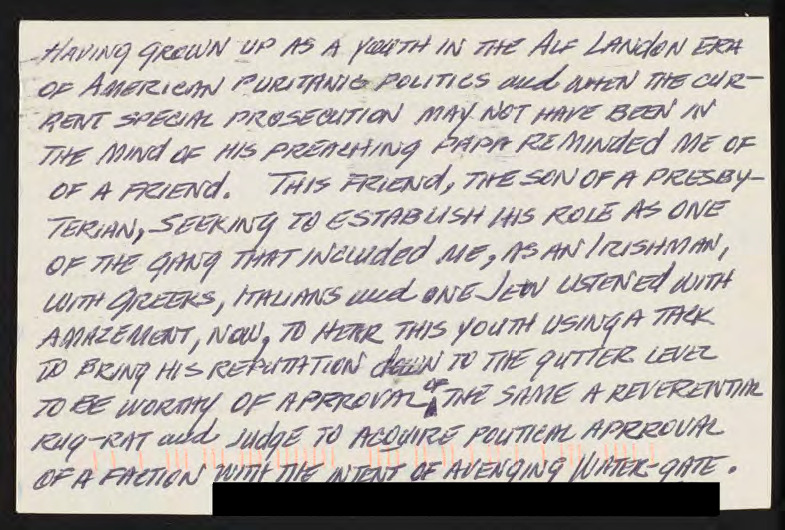 HAVING GROWN UP AS A YOUTH IN THE ALF LANDON ERA
OF AMERICAN PURITANIC POLITICS and WHEN THE CUR-
RENT SPECIAL PROSECUTION MAY NOT HAVE BEEN IN
THE MIND OF HIS PREACHING PAPA REMINDED ME OF
OF A FRIEND. THIS FRIEND, THE SON OF A PRESBY-
TERIAN, SEEKING TO ESTABLISH HIS ROLE AS ONE
OF THE GANG THAT INCLUDED ME, AS AN IRISHMAN,
WITH GREEKS, ITALIANS and ONE JEW LISTENED WITH
AMAZEMENT, NOW, TO HEAR THIS YOUTH USING A TACK
TO BRING HIS REPUTATION down TO THE GUTTER LEVEL
TO BE WORTHY OF APRROVAL OF THE SAME A REVERENTIAL
RUG-RAT and JUDGE TO ACQUIRE POLITICAL APRROVAL
OF A FACTION WITH THE INTENT OF AVENGING WATER-GATE.